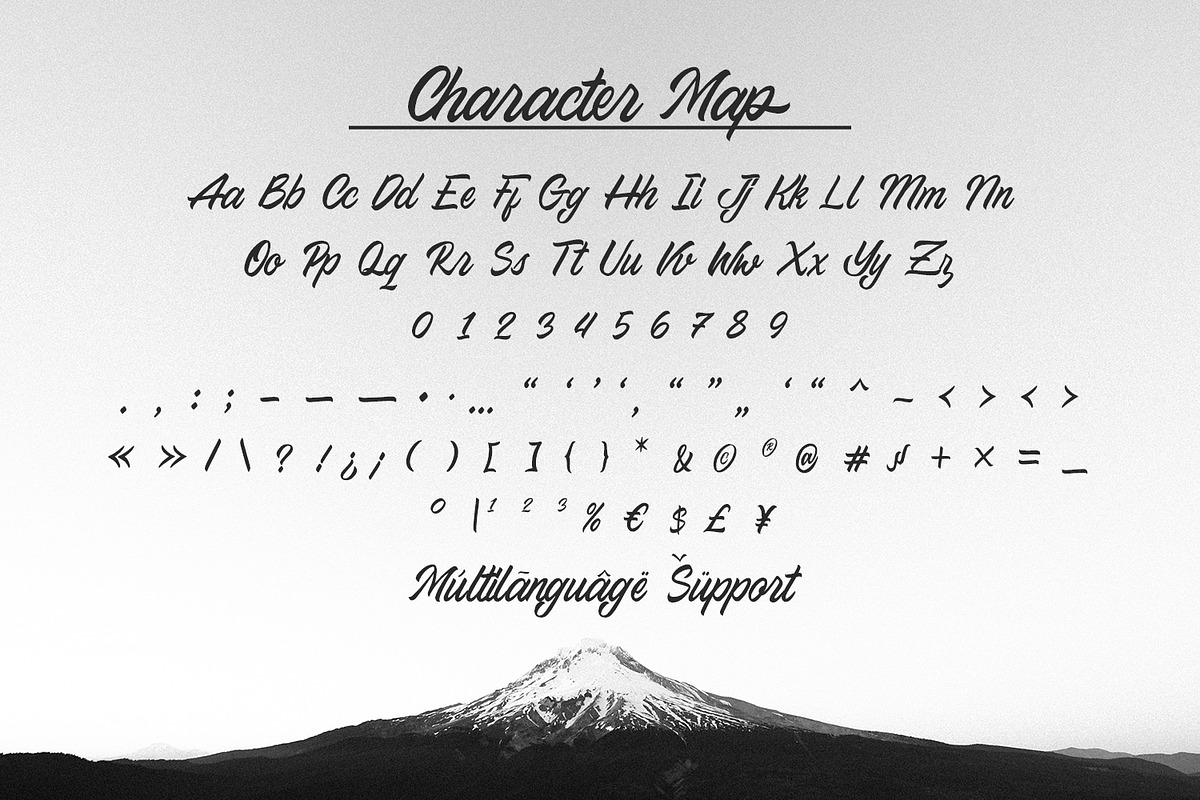 Character Map
Aa Bb Cc Dd Ee Ff Gg Hh Ii Jj Kk Ll Mm Nn
Oo Pp Qq Rr Ss Tt Uu Vv Ww Xx Yy Zz
0 1 2 3 4 5 6 7 8 9
. , : ; - – — • · … “ ‘ ’ ‘ , “ ” „ ‘ “ ^ ~ < > ‹ ›
« » / \ ? ! ¿ ¡ ( ) [ ] { } * & © ® @ # + × = _
° | ¹ ² ³ % € $ £ ¥
Múltilãnguâgë Šüpport